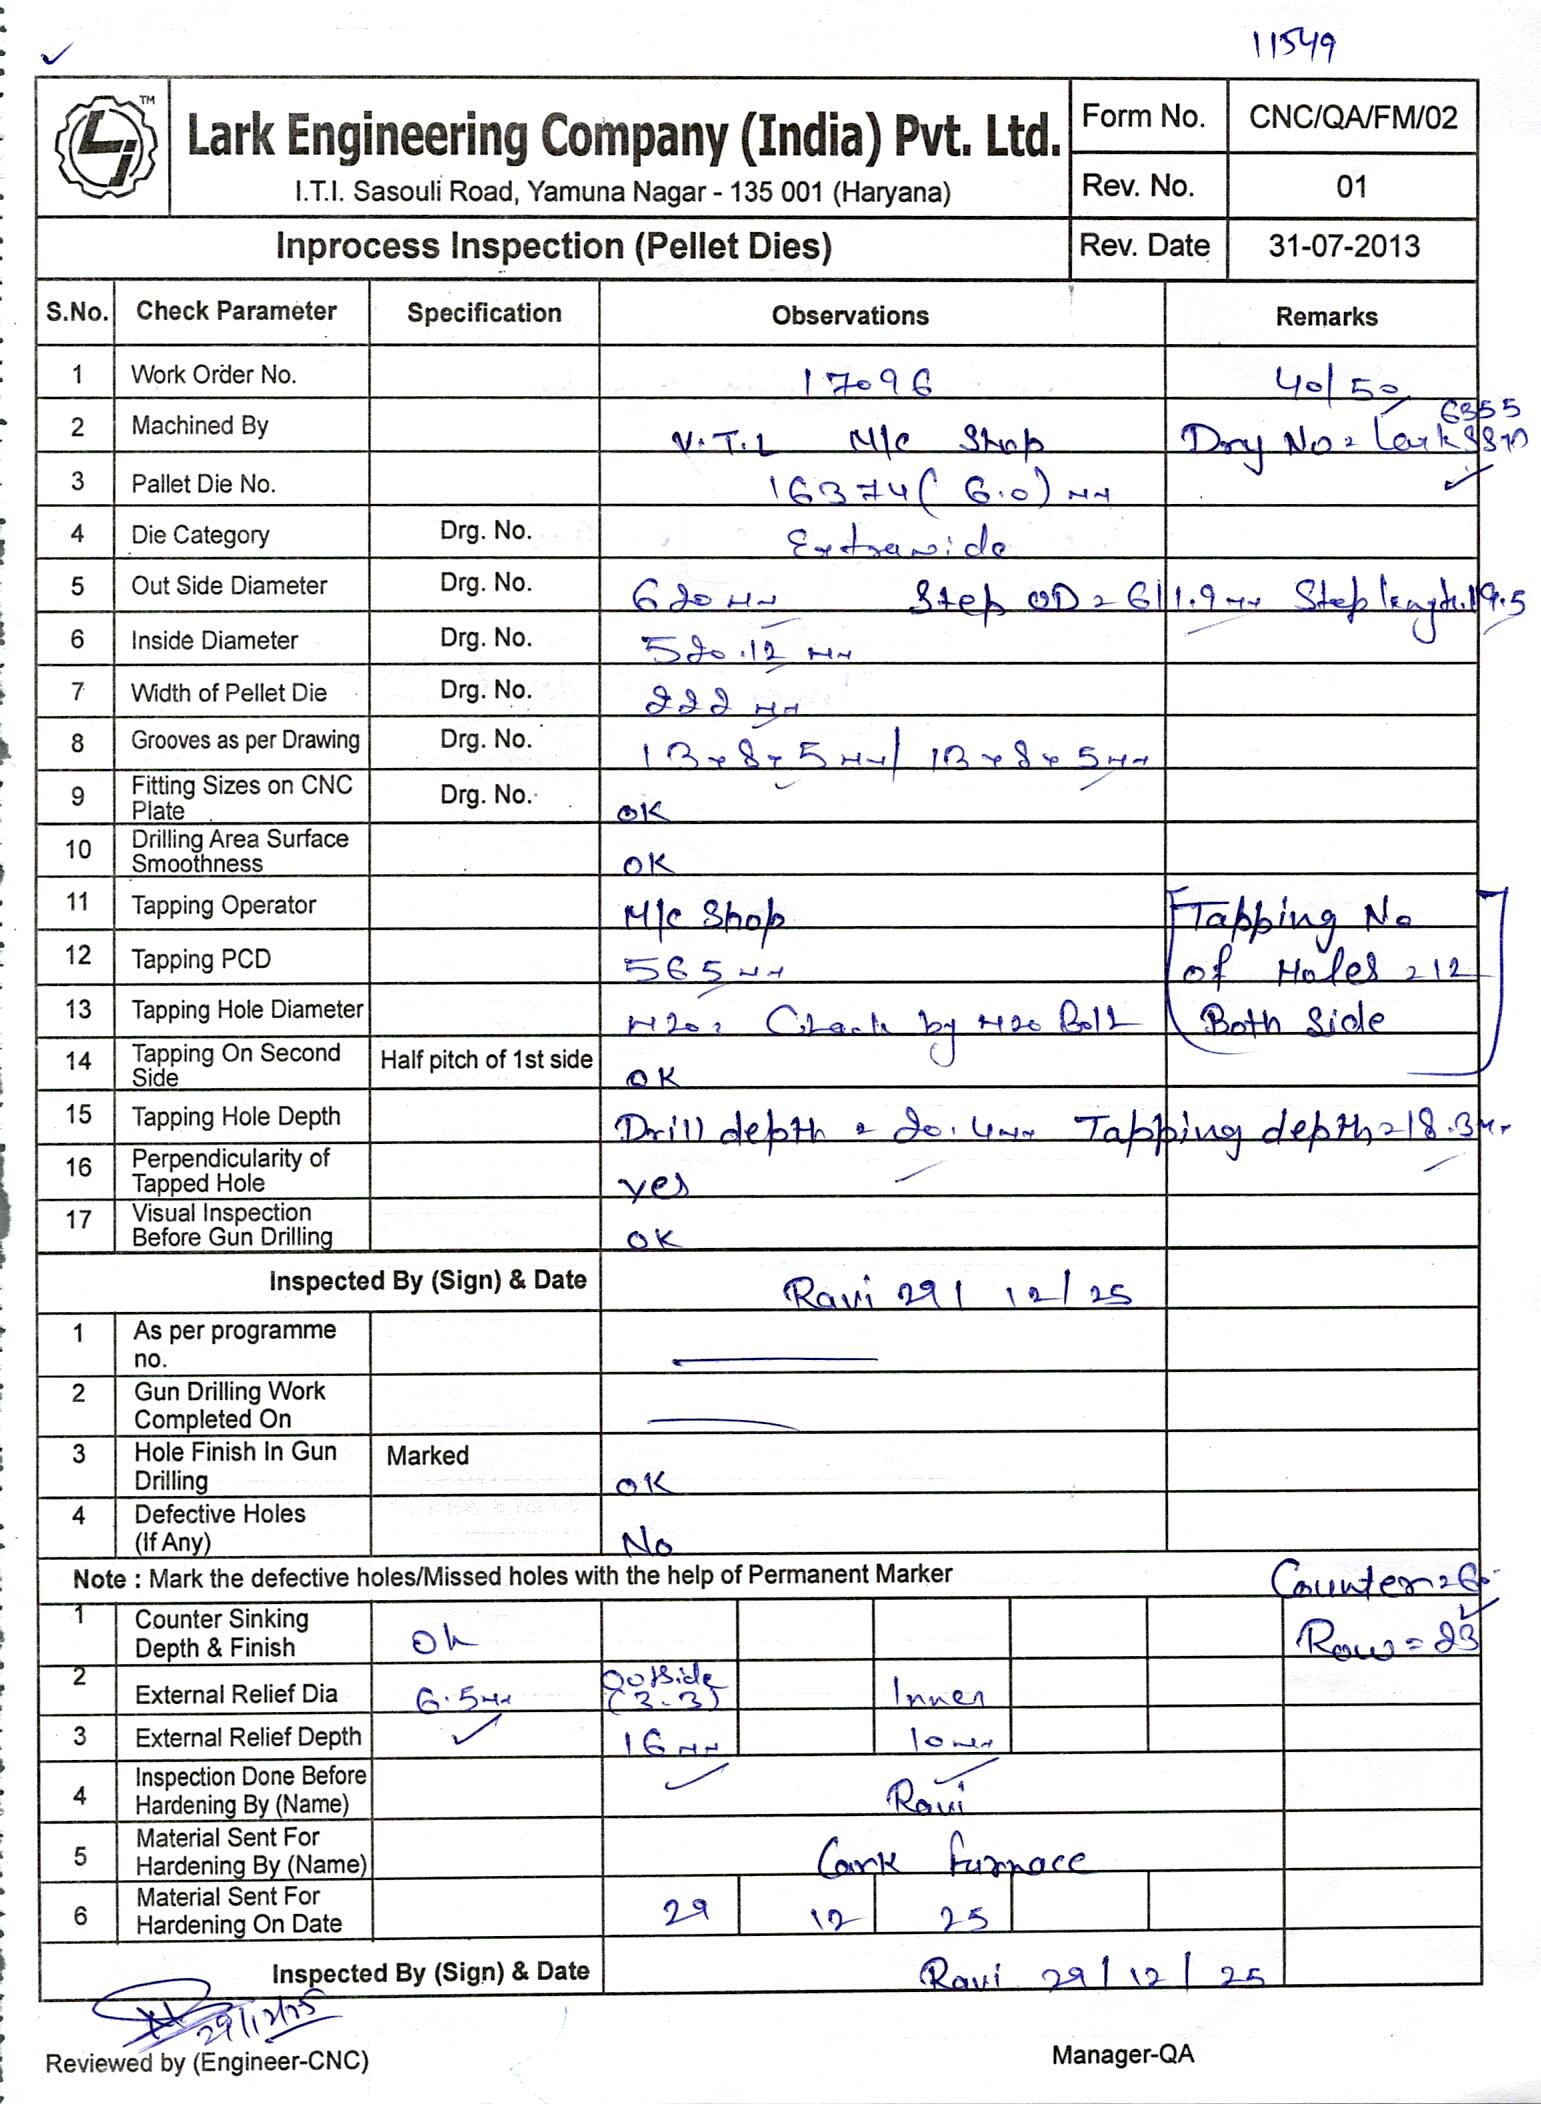 11549
Lark Engineering Company (India) Pvt. Ltd.
I.T.I. Sasouli Road, Yamuna Nagar - 135 001 (Haryana)
Form No. CNC/QA/FM/02
Rev. No. 01
Inprocess Inspection (Pellet Dies) Rev. Date 31-07-2013
S.No. Check Parameter Specification Observations Remarks
1 Work Order No. 17096 40/50
2 Machined By V.T.L M/c Shop Drg No = Lark 6355
3 Pallet Die No. 16374 (6.0) mm
4 Die Category Drg. No. Extrawide
5 Out Side Diameter Drg. No. 620 mm Step OD = 611.9 mm Step length 19.5
6 Inside Diameter Drg. No. 520.12 mm
7 Width of Pellet Die Drg. No. 222 mm
8 Grooves as per Drawing Drg. No. 13 x 8 x 5 mm / 13 x 8 x 5 mm
9 Fitting Sizes on CNC Plate Drg. No. OK
10 Drilling Area Surface Smoothness OK
11 Tapping Operator M/c Shop Tapping No
12 Tapping PCD 565 mm of Holes = 12
13 Tapping Hole Diameter M20 = Check by M20 Bolt Both Side
14 Tapping On Second Side Half pitch of 1st side OK
15 Tapping Hole Depth Drill depth = 20.4 mm Tapping depth = 18.3 mm
16 Perpendicularity of Tapped Hole yes
17 Visual Inspection Before Gun Drilling OK
Inspected By (Sign) & Date Ravi 29/12/25
1 As per programme no.
2 Gun Drilling Work Completed On
3 Hole Finish In Gun Drilling Marked OK
4 Defective Holes (If Any) No
Note : Mark the defective holes/Missed holes with the help of Permanent Marker Counter = 60
1 Counter Sinking Depth & Finish Ok Row = 23
2 External Relief Dia 6.5 mm Outside (3-3) Inner
3 External Relief Depth 16 mm 10 mm
4 Inspection Done Before Hardening By (Name) Ravi
5 Material Sent For Hardening By (Name) Lark Furnace
6 Material Sent For Hardening On Date 29 12 25
Inspected By (Sign) & Date Ravi 29/12/25
29/12/25
Reviewed by (Engineer-CNC) Manager-QA